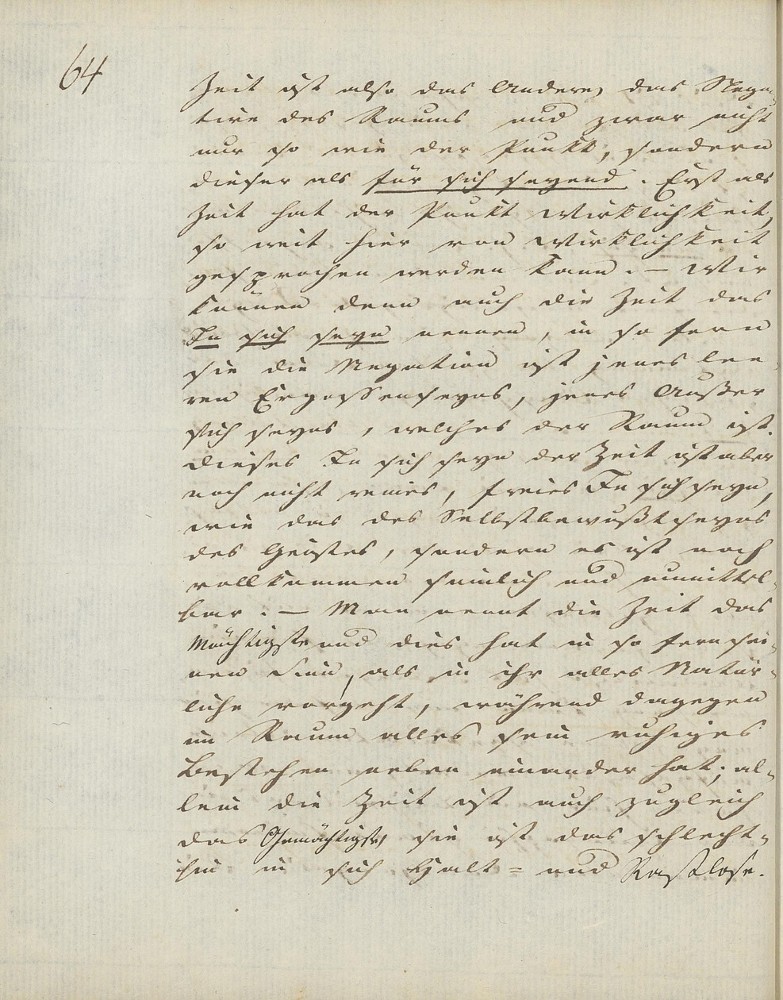 64
Zeit ist also das Andere, das Nega-
tive des Raums und zwar nicht
nur so wie der Punkt, sondern
dieser als für sich seyend. Erst als
Zeit hat der Punkt Wirklichkeit,
so weit hier von Wirklichkeit
gesprochen werden kann. — Wir
können denn auch die Zeit das
In sich seyn nennen, in so fern
sie die Negation ist jenes lee-
ren Ergossenseyns, jenes Außer
sich seyns, welches der Raum ist.
Dieses In sich seyn der Zeit ist aber
noch nicht reines, freies In sich seyn,
wie das des Selbstbewußtseyns
des Geistes, sondern es ist noch
vollkommen sinnlich und unmittel-
bar. — Man nennt die Zeit das
Mächtigste und dies hat in so fern sei-
nen Sinn, als in ihr alles Natür-
liche vorgeht, während dagegen
im Raum alles sein ruhiges
Bestehen neben einander hat; al-
lein die Zeit ist auch zugleich
das Ohnmächtigste, sie ist das schlecht-
hin in sich Halt- und Rastlose.